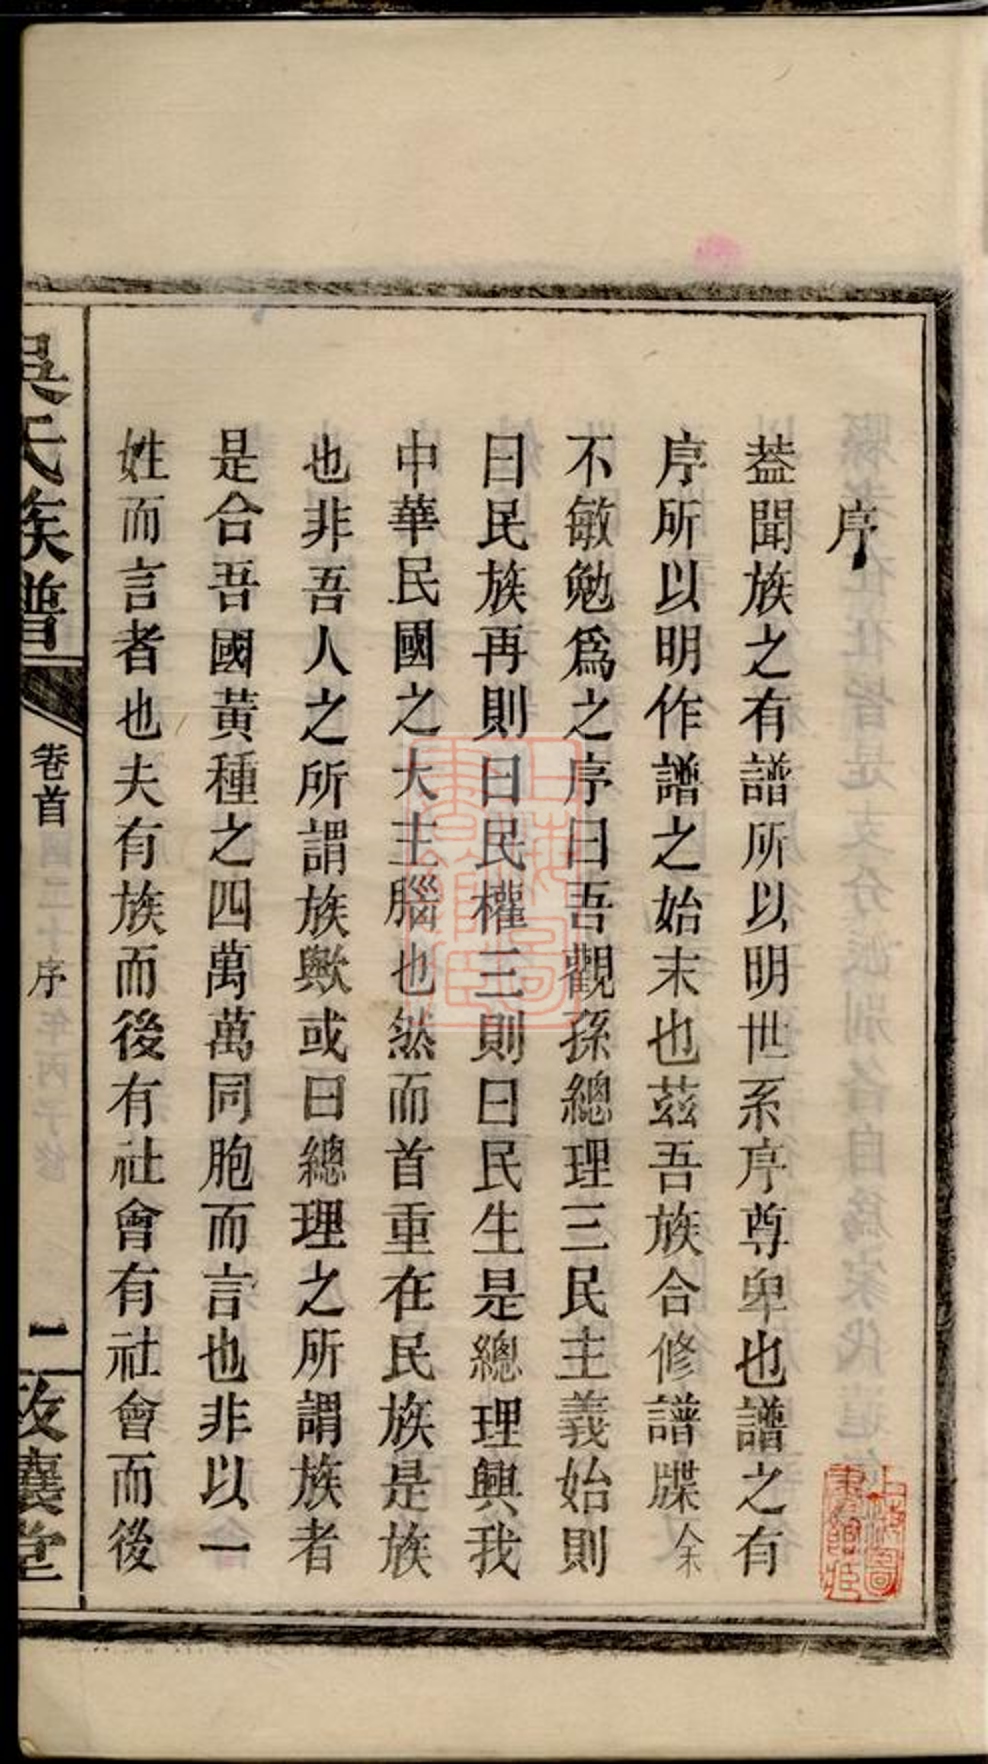 序
葢聞族之有譜所以明世系序尊卑也譜之有
序所以明作譜之始末也茲吾族合修譜牒余
不敏勉爲之序曰吾觀孫總理三民主義始則
曰民族再則曰民權三則曰民生是總理興我
中華民國之大主腦也然而首重在民族是族
也非吾人之所謂族歟或曰總理之所謂族者
是合吾國黃種之四萬萬同胞而言也非以一
姓而言者也夫有族而後有社會有社會而後
吳氏族譜
卷首
序
一
堂
上海圖書館藏
上海圖書館藏